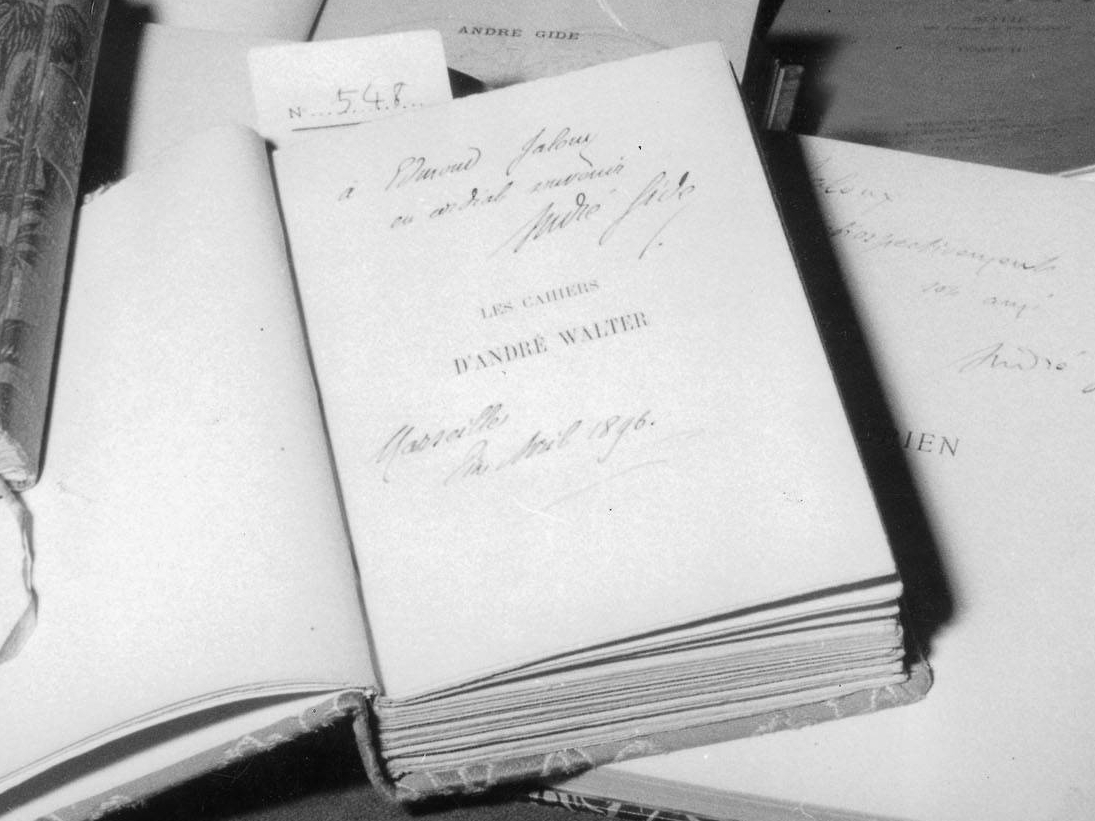 ANDRÉ GIDE
N° 548
à Edmond Jaloux
en cordial souvenir
André Gide
LES CAHIERS
D'ANDRÉ WALTER
Marseille
fin Avril 1896.
Jaloux
son ami
André
IEN